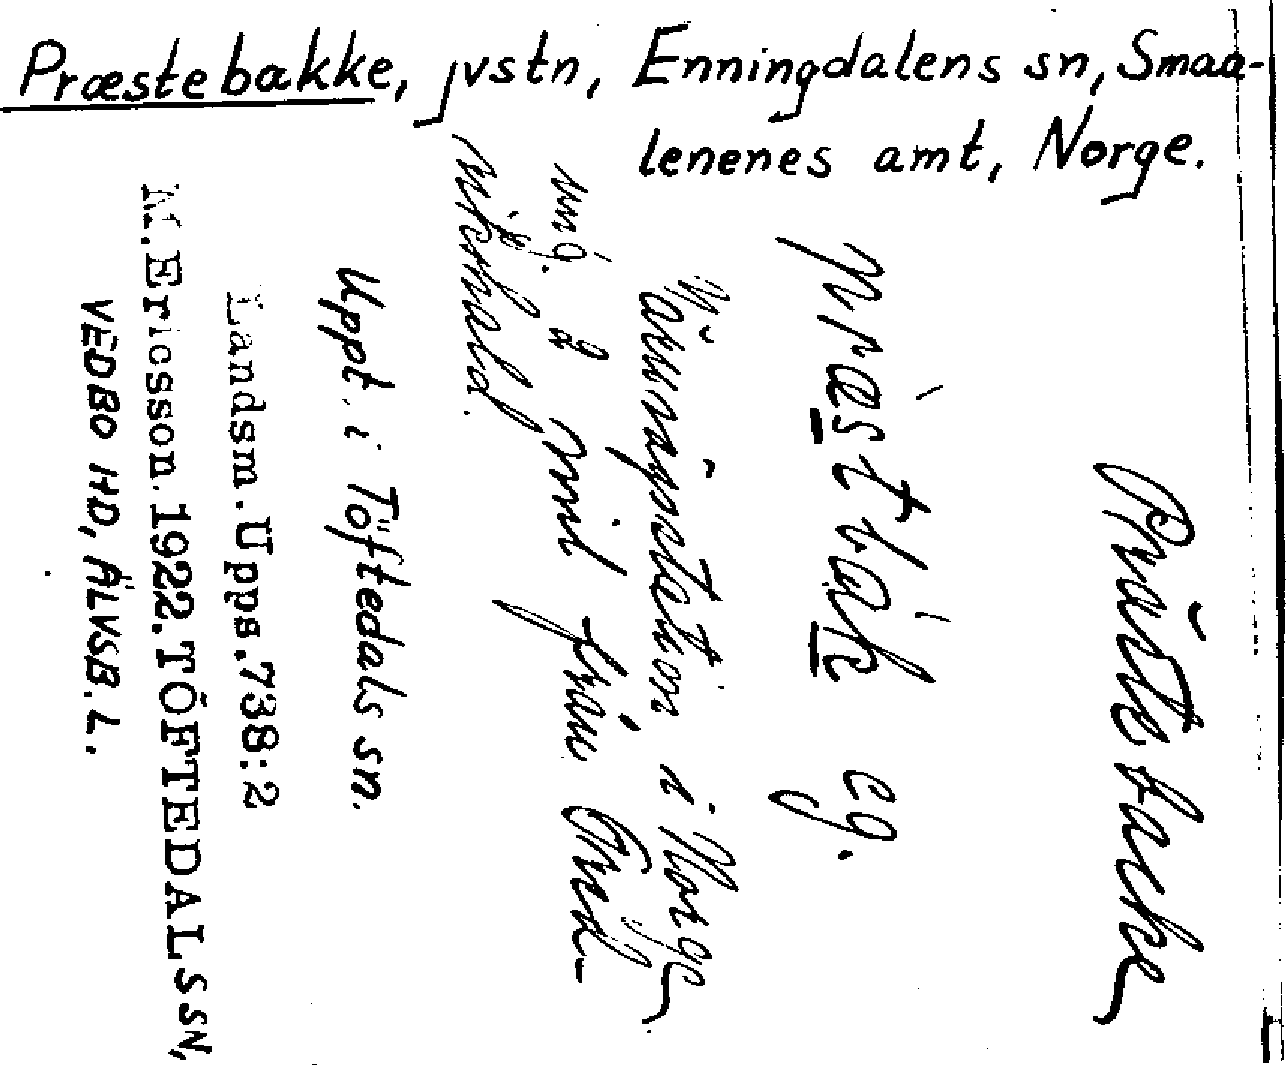 Præstebakke, jvstn, Enningdalens sn, Smaa-
lenenes amt, Norge.
Prästebacke
præstbak eg.
Järnvägsstation i Norge
ung. 2 mil från Fred-
rikshald.
Uppt. i Töftedals sn.
Landsm. Upps. 738:2
M. Ericsson. 1922. TÖFTEDALS SN,
VEDBO HD, ÄLVSB. L.